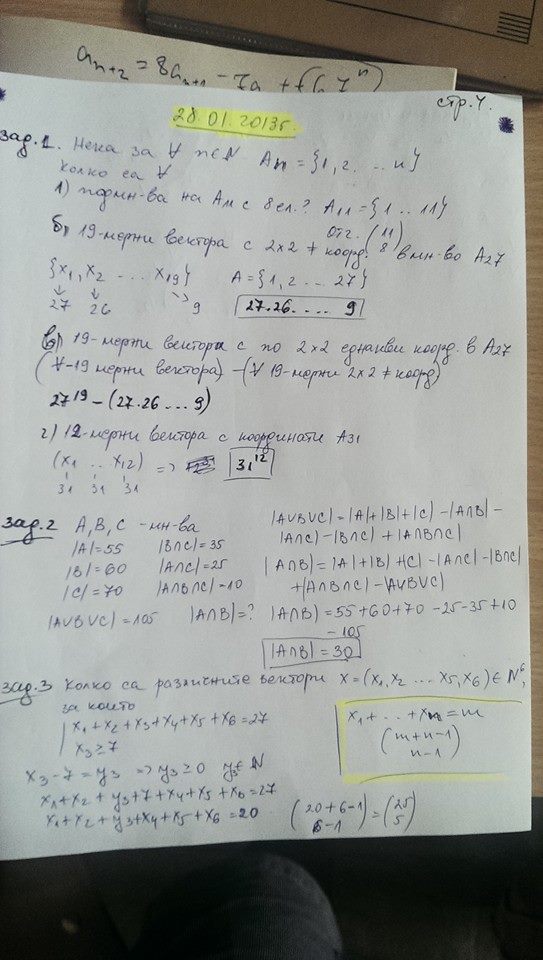 aₙ₊₂ = 8aₙ₊₁ - 7a
стр. 4.
28.01.2013г.
зад.1. Нека за ∀ n∈N Aₙ = {1, 2, ... n}
Колко са ∀
1) подмн-ва на A₁₁ с 8 ел.? A₁₁ = {1 .. 11}
отг. (11 8)
б) 19-мерни вектора с 2x2 ≠ коорд. в мн-во A₂₇
{x₁, x₂ ... x₁₉} A = {1, 2 ... 27}
↓ ↓ ↘
27 26 9 27.26. ... 9
в) 19-мерни вектора с по 2x2 еднакви коорд. в A₂₇
(∀-19 мерни вектора) - (∀ 19-мерни 2x2 ≠ коорд)
27¹⁹ - (27.26 ... 9)
г) 12-мерни вектора с координати A₃₁
(x₁ ... x₁₂) => 31¹²
31 31 31
зад.2 A, B, C - мн-ва
|A|=55 |B∩C|=35
|B|=60 |A∩C|=25
|C|=70 |A∩B∩C|=10
|A∪B∪C|=105 |A∩B|=?
|A∪B∪C|=|A|+|B|+|C|-|A∩B|-
|A∩C|-|B∩C|+|A∩B∩C|
|A∩B|=|A|+|B|+|C|-|A∩C|-|B∩C|
+|A∩B∩C|-|A∪B∪C|
|A∩B|=55+60+70-25-35+10
-105
|A∩B|=30
зад.3 Колко са различните вектори x=(x₁,x₂ ... x₅,x₆)∈N⁶,
за които
x₁+x₂+x₃+x₄+x₅+x₆=27
x₃≥7
x₁+...+xₙ=m
(m+n-1 n-1)
x₃-7=y₃ => y₃≥0 y₃∈N
x₁+x₂+y₃+7+x₄+x₅+x₆=27
x₁+x₂+y₃+x₄+x₅+x₆=20
(20+6-1 6-1) = (25 5)